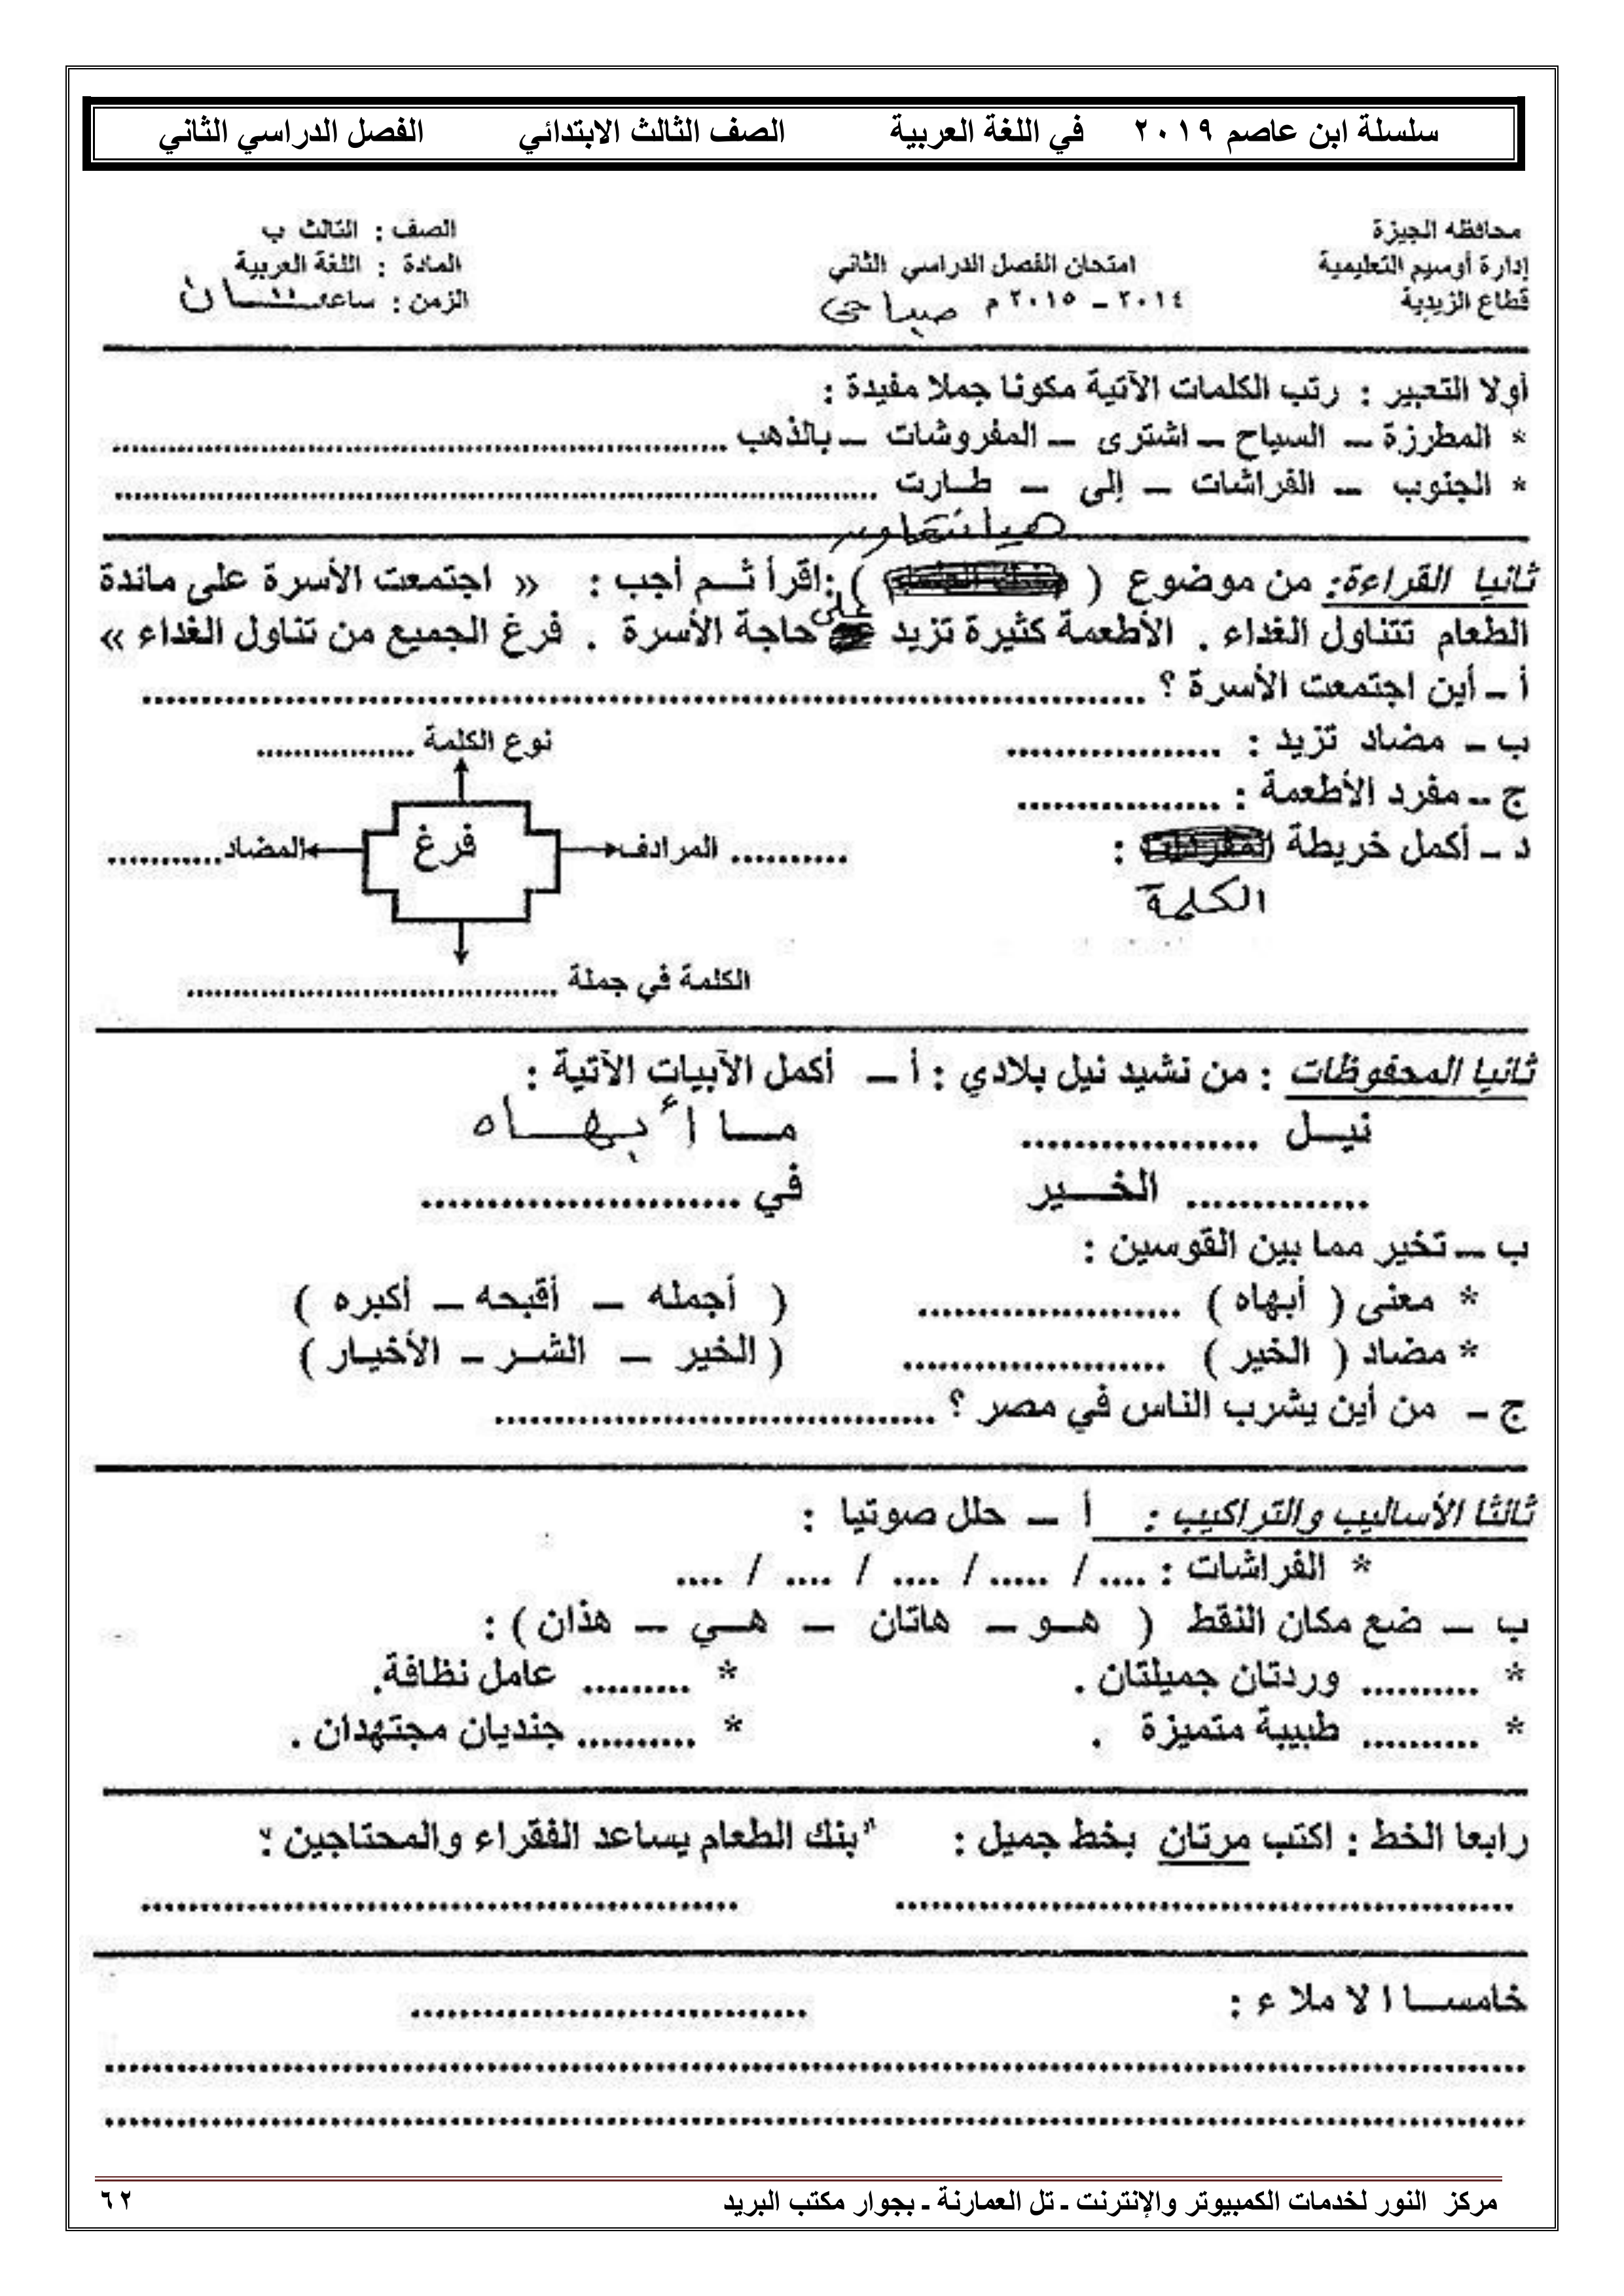 سلسلة ابن عاصم ٢٠١٩ في اللغة العربية الصف الثالث الابتدائي الفصل الدراسي الثاني
محافظه الجيزة الصف : الثالث ب
إدارة أوسيم التعليمية امتحان الفصل الدراسي الثاني المادة : اللغة العربية
قطاع الزيدية ٢٠١٤ – ٢٠١٥ م صباحى الزمن : ساعتان
أولا التعبير : رتب الكلمات الآتية مكونا جملا مفيدة :
* المطرزة – السياح – اشترى – المفروشات – بالذهب ..........
* الجنوب – الفراشات – إلى – طارت ..........
هيا نتعاون
ثانيا القراءة: من موضوع ( ) :اقرأ ثم أجب : « اجتمعت الأسرة على مائدة
الطعام تتناول الغداء . الأطعمة كثيرة تزيد على حاجة الأسرة . فرغ الجميع من تناول الغداء »
أ – أين اجتمعت الأسرة ؟ ..........
ب – مضاد تزيد : .......... نوع الكلمة ..........
ج – مفرد الأطعمة : ..........
د – أكمل خريطة : .......... المرادف فرغ المضاد..........
الكلمة
الكلمة في جملة ..........
ثانيا المحفوظات : من نشيد نيل بلادي : أ – أكمل الأبيات الآتية :
نيل .......... ما أبهاه
.......... الخير في ..........
ب – تخير مما بين القوسين :
* معنى ( أبهاه ) .......... ( أجمله – أقبحه – أكبره )
* مضاد ( الخير ) .......... ( الخير – الشر – الأخيار )
ج – من أين يشرب الناس في مصر ؟ ..........
ثالثا الأساليب والتراكيب : أ – حلل صوتيا :
* الفراشات : .... / ..... / .... / .... / ....
ب – ضع مكان النقط ( هو – هاتان – هي – هذان ) :
* .......... وردتان جميلتان . * ......... عامل نظافة.
* .......... طبيبة متميزة . * ..........جنديان مجتهدان .
رابعا الخط : اكتب مرتان بخط جميل : "بنك الطعام يساعد الفقراء والمحتاجين":
.......... ..........
خامسا الاملاء : ..........
..........
..........
مركز النور لخدمات الكمبيوتر والإنترنت ـ تل العمارنة ـ بجوار مكتب البريد ٦٢